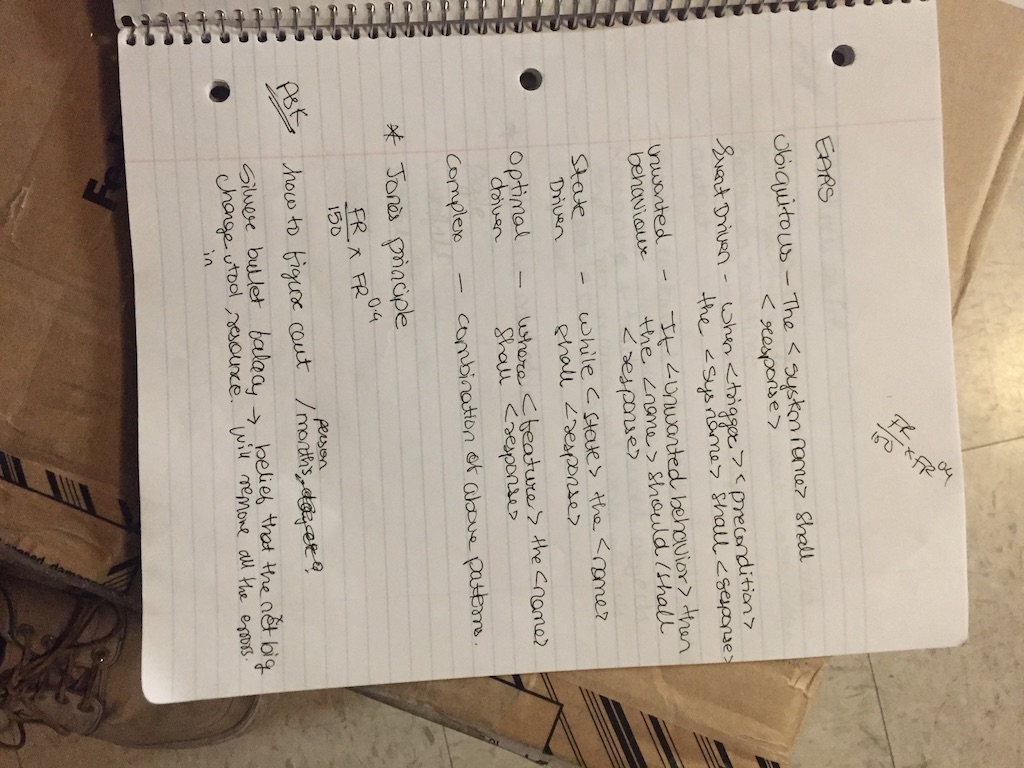 FR/150 x FR^0.4
EARS
Ubiquitous - The <system name> shall
<response>
Event Driven - when <trigger> <precondition>
the <sys name> shall <response>
unwanted - If <unwanted behavior> then
behaviour the <name> should/shall
<response>
State - while <state> the <name>
Driven shall <response>
Optional - where <feature> the <name>
driven shall <response>
Complex - combination of above patterns.
* Jones principle
FR/150 x FR^0.4
person
ASK how to figure out /months,
Silver bullet falacy → belief that the next big
change, tool, resource will remove all the errors.
in